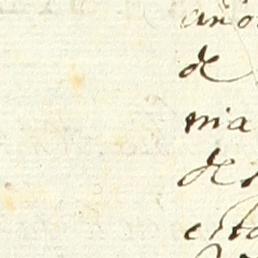 año
de
mia
de
esta